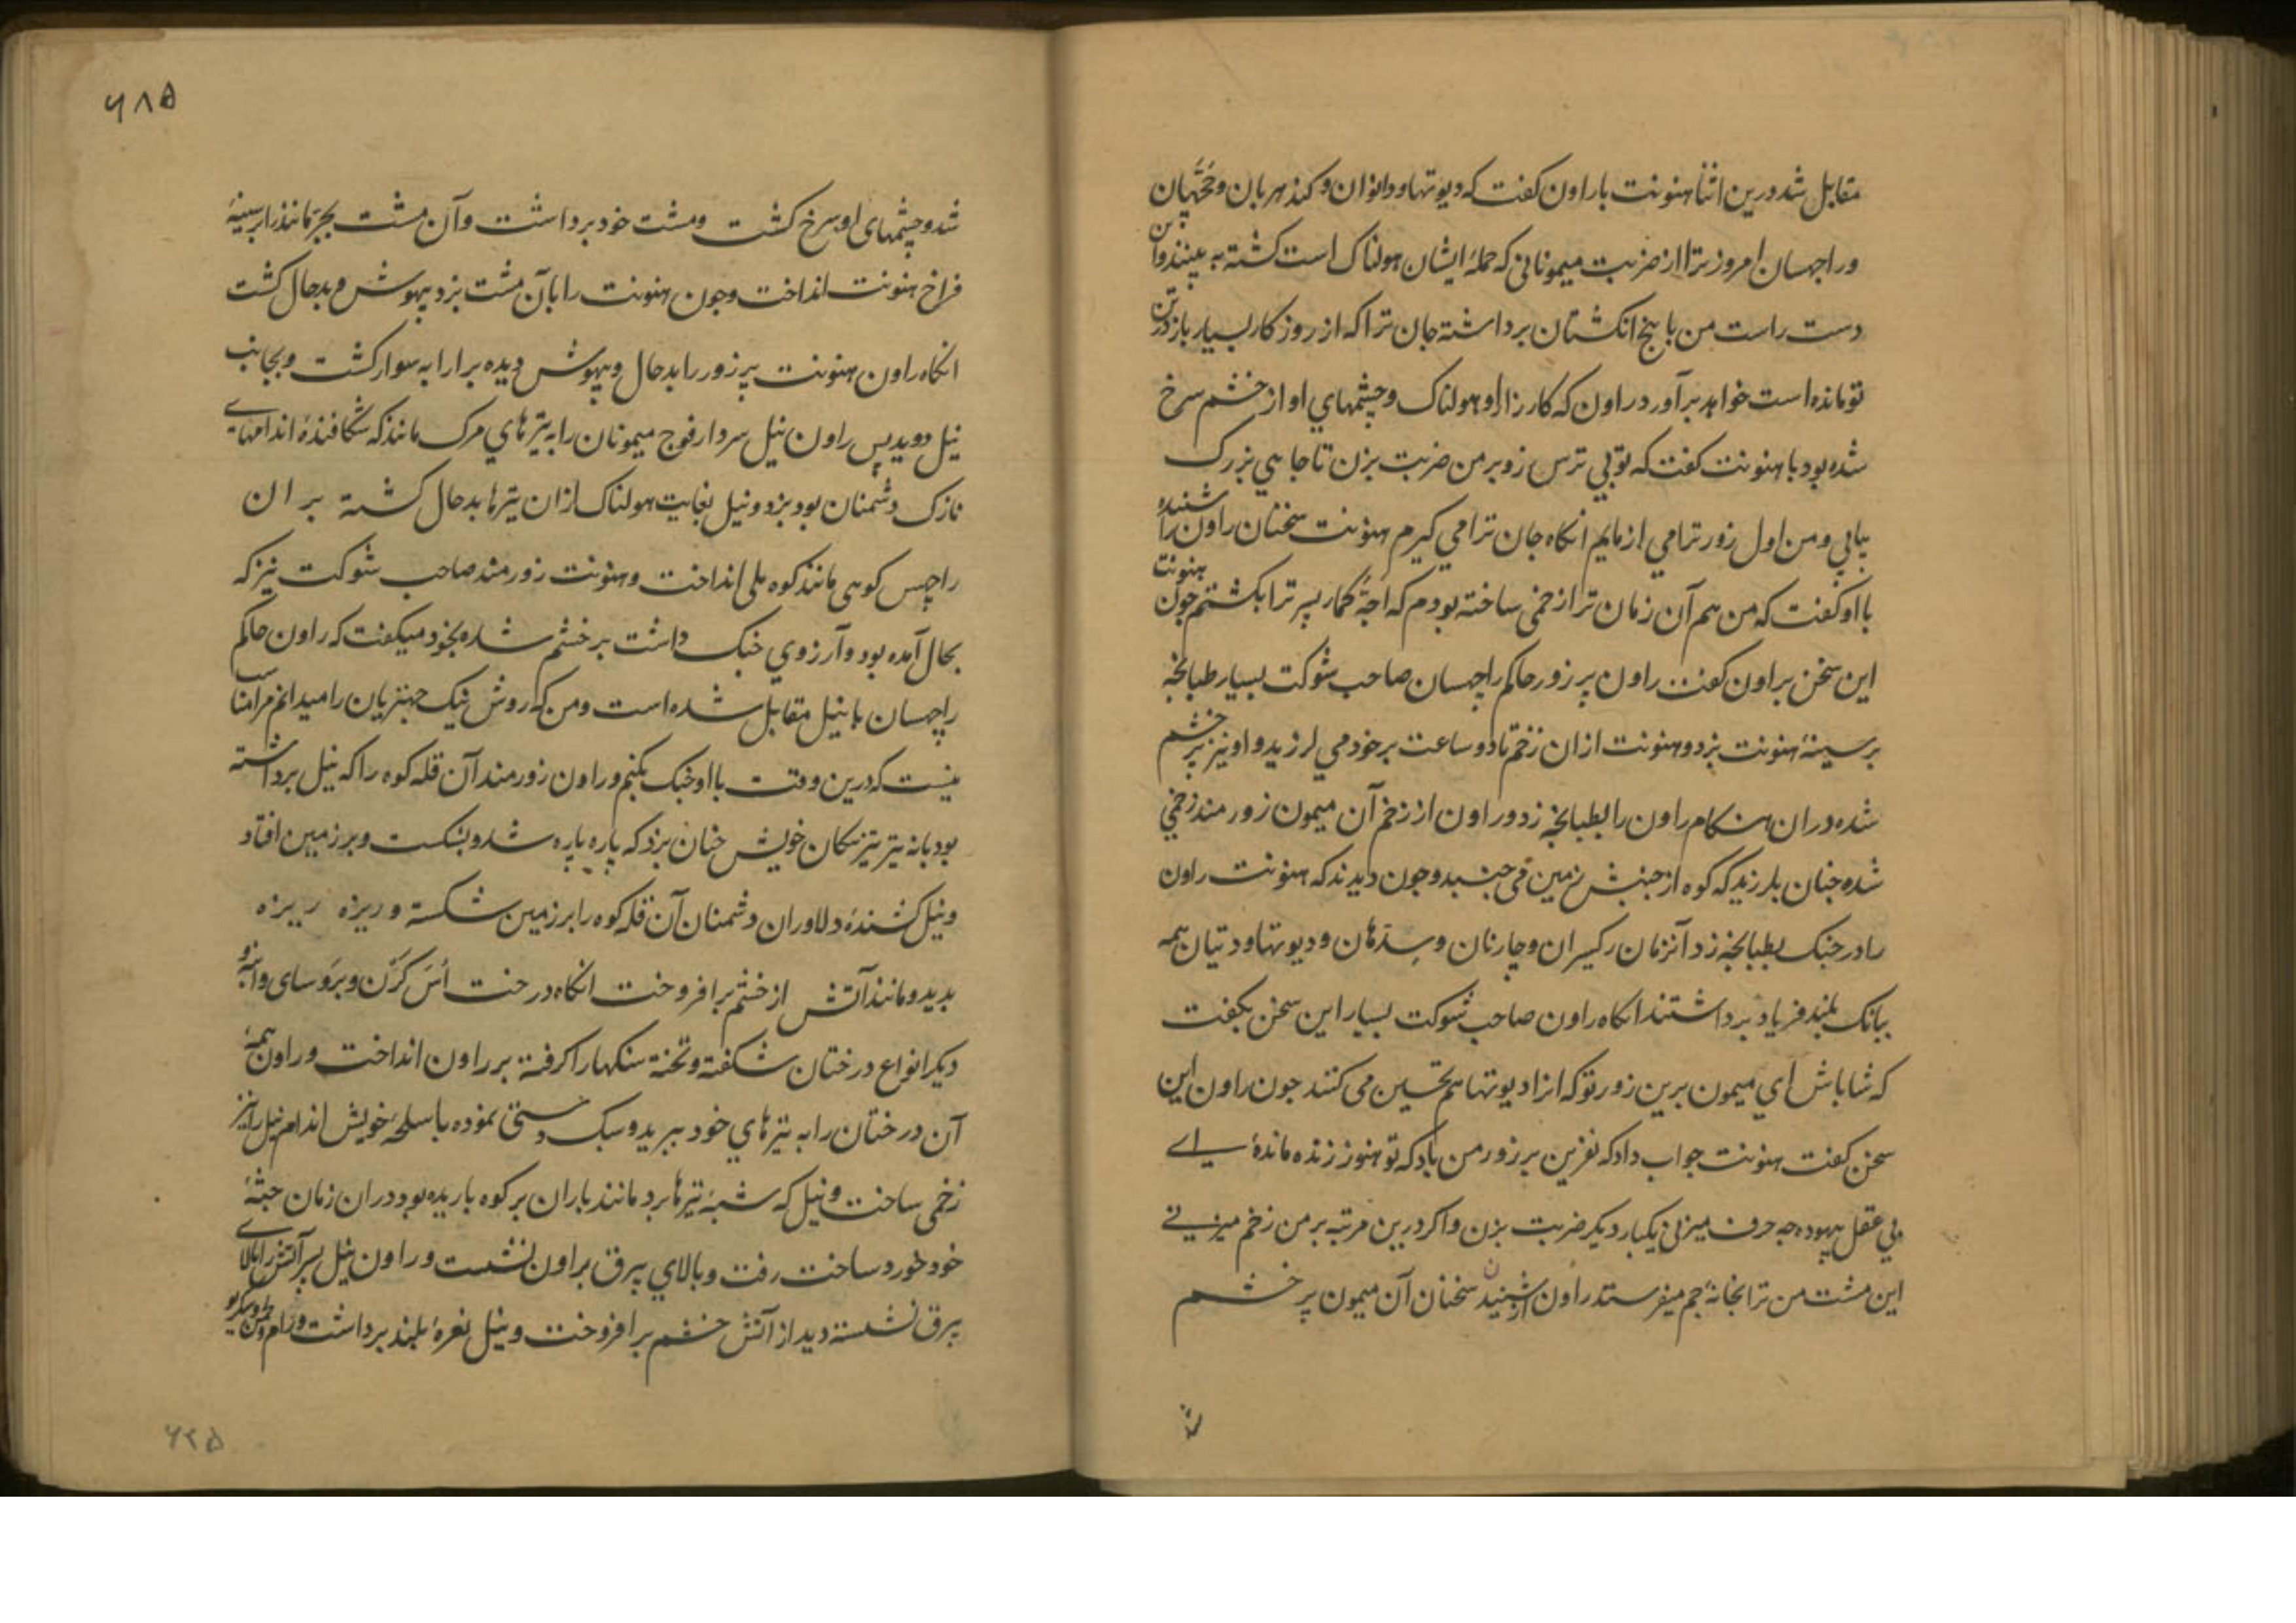 مقابل شد درین اثنا هنونت با راون کفت که دیوتها و دانوان و کندهربان و جچهان
و راچهسان امروز ترا از ضربت میمونانی که حمله ایشان هولناک است کشته به بینند و این
دست راست من با پنج انکشتان برداشته جان ترا که از روزکار بسیار باز در تن
تو مانده است خواهد برآورد راون که کارزار او هولناک و چشمهاي او از خشم سرخ
شده بود با هنونت کفت که تو بي ترس زود بر من ضربت بزن تا جاهي بزرک
بیابي و من اول زور ترا مي ازمایم انکاه جان ترا مي کیرم هنونت سخنان راون را شنیده
با او کفت که من هم آن زمان ترا زخمی ساخته بودم که اچه کمار پسر ترا بکشتم چون هنونت
این سخن براون کفت راون پر زور حاکم راچهسان صاحب شوکت بسیار طبانچه
بر سینهٔ هنونت بزد و هنونت ازان زخم تا دو ساعت بر خود مي لرزید و او نیز پر خشم
شده دران هنکام راون را بطبانچه زد و راون از زخم آن میمون زورمند زخمي
شده چنان بلرزید که کوه از جنبش زمین می جنبد و چون دیدند که هنونت راون
را در جنک بطبانچه زد آنزمان رکیسران و چارنان و سدهان و دیوتها و دتیان همه
ببانک بلند فریاد برداشتند انکاه راون صاحب شوکت بسیار این سخن بکفت
که شاباش اي میمون برین زور تو که انرا دیوتها هم تحسین می کنند چون راون این
سخن کفت هنونت جواب داد که نفرین بر زور من باد که تو هنوز زنده ماندهٔ اے
بي عقل بیهوده چه حرف میزنی یکبار دیکر ضربت بزن و اکر درین مرتبه بر من زخم میزنے
این مشت من ترا بخانهٔ جم میفرستد راون از شنیدن سخنان آن میمون پر خشم
شد
۶۸۵
شد و چشمهای او سرخ کشت و مشت خود برداشت و آن مشت بجر مانند را بر سینهٔ
فراخ هنونت انداخت و چون هنونت را بآن مشت بزد بیهوش و بدحال کشت
انکاه راون هنونت پر زور را بدحال و بیهوش دیده بر ارابه سوار کشت و بجانب
نیل دوید پس راون نیل سردار فوج میمونان را به تیرهاي مرک مانند که شکافندهٔ اندامهاے
نازک دشمنان بود بزد و نیل بغایت هولناک ازان تیرها بدحال کشته بر ان
راچهس کوهی مانند کوه ملی انداخت و هنونت زورمند صاحب شوکت نیز که
بحال آمده بود و آرزوي جنک داشت بر خشم شده بخود میکفت که راون حاکم
راچهسان با نیل مقابل شده است و من که روش نیک چهتریان را میدانم مرا مناسب
نیست که درین وقت با او جنک بکنم و راون زورمند آن قله کوه را که نیل برداشته
بود بانه تیر تیز مکان خویش چنان بزد که پاره پاره شد و بشکست و بر زمین افتاد
و نیل کشندهٔ دلاوران دشمنان آن قله کوه را بر زمین شکسته و ریزه ریزه
بدید و مانند آتش از خشم برافروخت انکاه درخت اس کرن و بروسای و انبه و
دیکر انواع درختان شکفته و تخته سنکها را کرفته بر راون انداخت و راون همهٔ
آن درختان را به تیرهاي خود ببرید و سبک دستی نموده با سلحهٔ خویش اندام نیل را نیز
زخمی ساخت و نیل که شبهٔ تیرها برو مانند باران بر کوه باریده بود دران زمان جثهٔ
خود خورد ساخت رفت و بالاي بیرق براون نشست و راون نیل پسر آتش را بالاے
بیرق نشسته دید از آتش خشم برافروخت و نیل نعرهٔ بلند برداشت و رام و لچمن و سکریو
۶۲۵